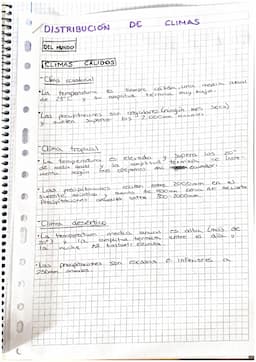 DISTRIBUCIÓN DE CLIMAS
DEL MUNDO
CLIMAS CÁLIDOS
Clima ecuatorial
·La temperatura es siempre cálida, una media anual
de 25°C y su amplitud térmica muy baja.
·Las precipitaciones son regulares (ningún mes seco)
y suelen superar los 2.000mm anuales.
Clima tropical
·La temperatura es elevada y supera los 20°
amplitud térmica se
según nos alejamos del ecuador.
·Las precipitaciones entre 2000mm en el
Precipitaciones anuales entre
Clima desértico
·La temperatura media anual es alta (más de
20°) y la amplitud térmica entre el día y
la noche es bastante elevada.
·Las precipitaciones son escasas e inferiores a
250mm anuales.